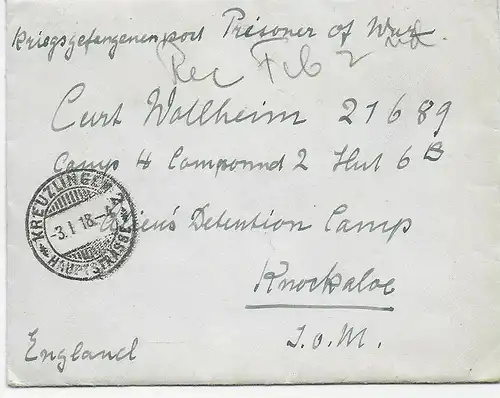 Kriegsgefangenenpost Prisoner of War
Rec Feb 2nd
Curt Wollheim 21689
Camp 4 Compound 2 Hut 6B
Aliens Detention Camp
Knockaloe
I.o.M.
England
KREUZLINGEN 2
-3.I.18.-4
HAUPTSTRASSE